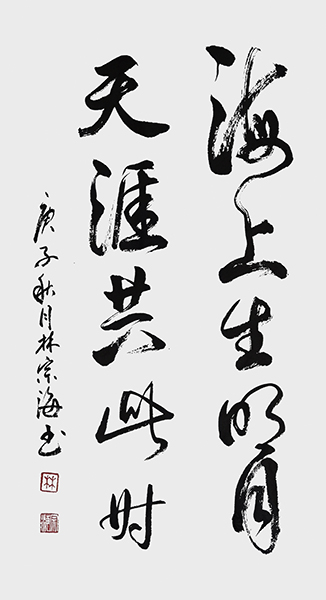 海上生明月
天涯共此时
庚子秋月林宗海书
林